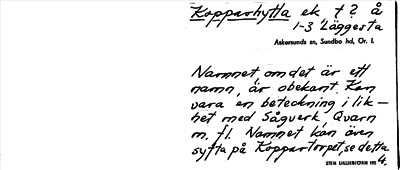 Kopparhytta ek † ? å
1-3 Läggesta
Askersunds sn, Sundbo hd, Ör. l.
Namnet, om det är ett
namn, är obekant. Kan
vara en beteckning i lik-
het med Sågverk, Qvarn
m. fl. Namnet kan även
syfta på Koppartorpet, se detta
STEN LILLIEBJÖRN 1954.